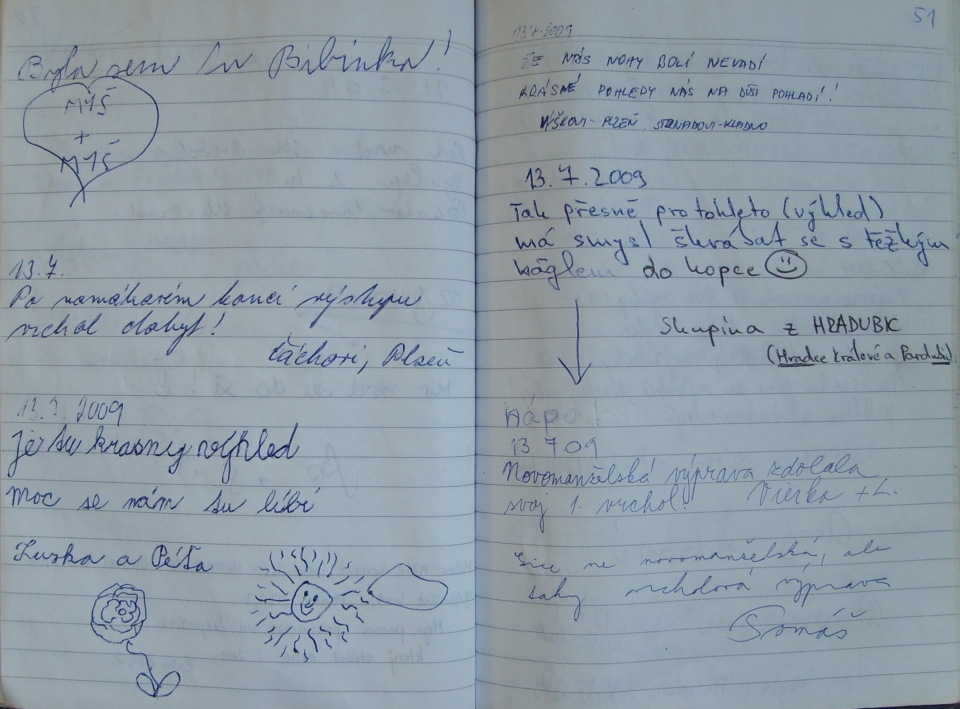 Byla sem tu Bibinka!
MYŠ
+
MYŠ
13.7.
Po namáhavém konci výstupu
vrchol dobyt!
Čáchovi, Plzeň
13.7 2009
je tu krasny vyhled
Moc se nám tu líbí
Zuzka a Péťa
51
13.7.2009
ŽE NÁS NOHY BOLÍ NEVADÍ
KRÁSNÉ POHLEDY NÁS NA DUŠI POHLADÍ!
VÝŠKOVI-PLZEŇ STRNADOVI-KLADNO
13.7.2009
Tak přesně pro tohleto (výhled)
má smysl škrábat se s těžkým
báglem do kopce
Skupina z HRADUBIC
(Hradce Králové a Pardubic)
13 7 09
Novomanželská výprava zdolala
svoj 1. vrchol! Vierka + L.
Sice ne novomanželská, ale
taky vrcholová výprava
Tomáš